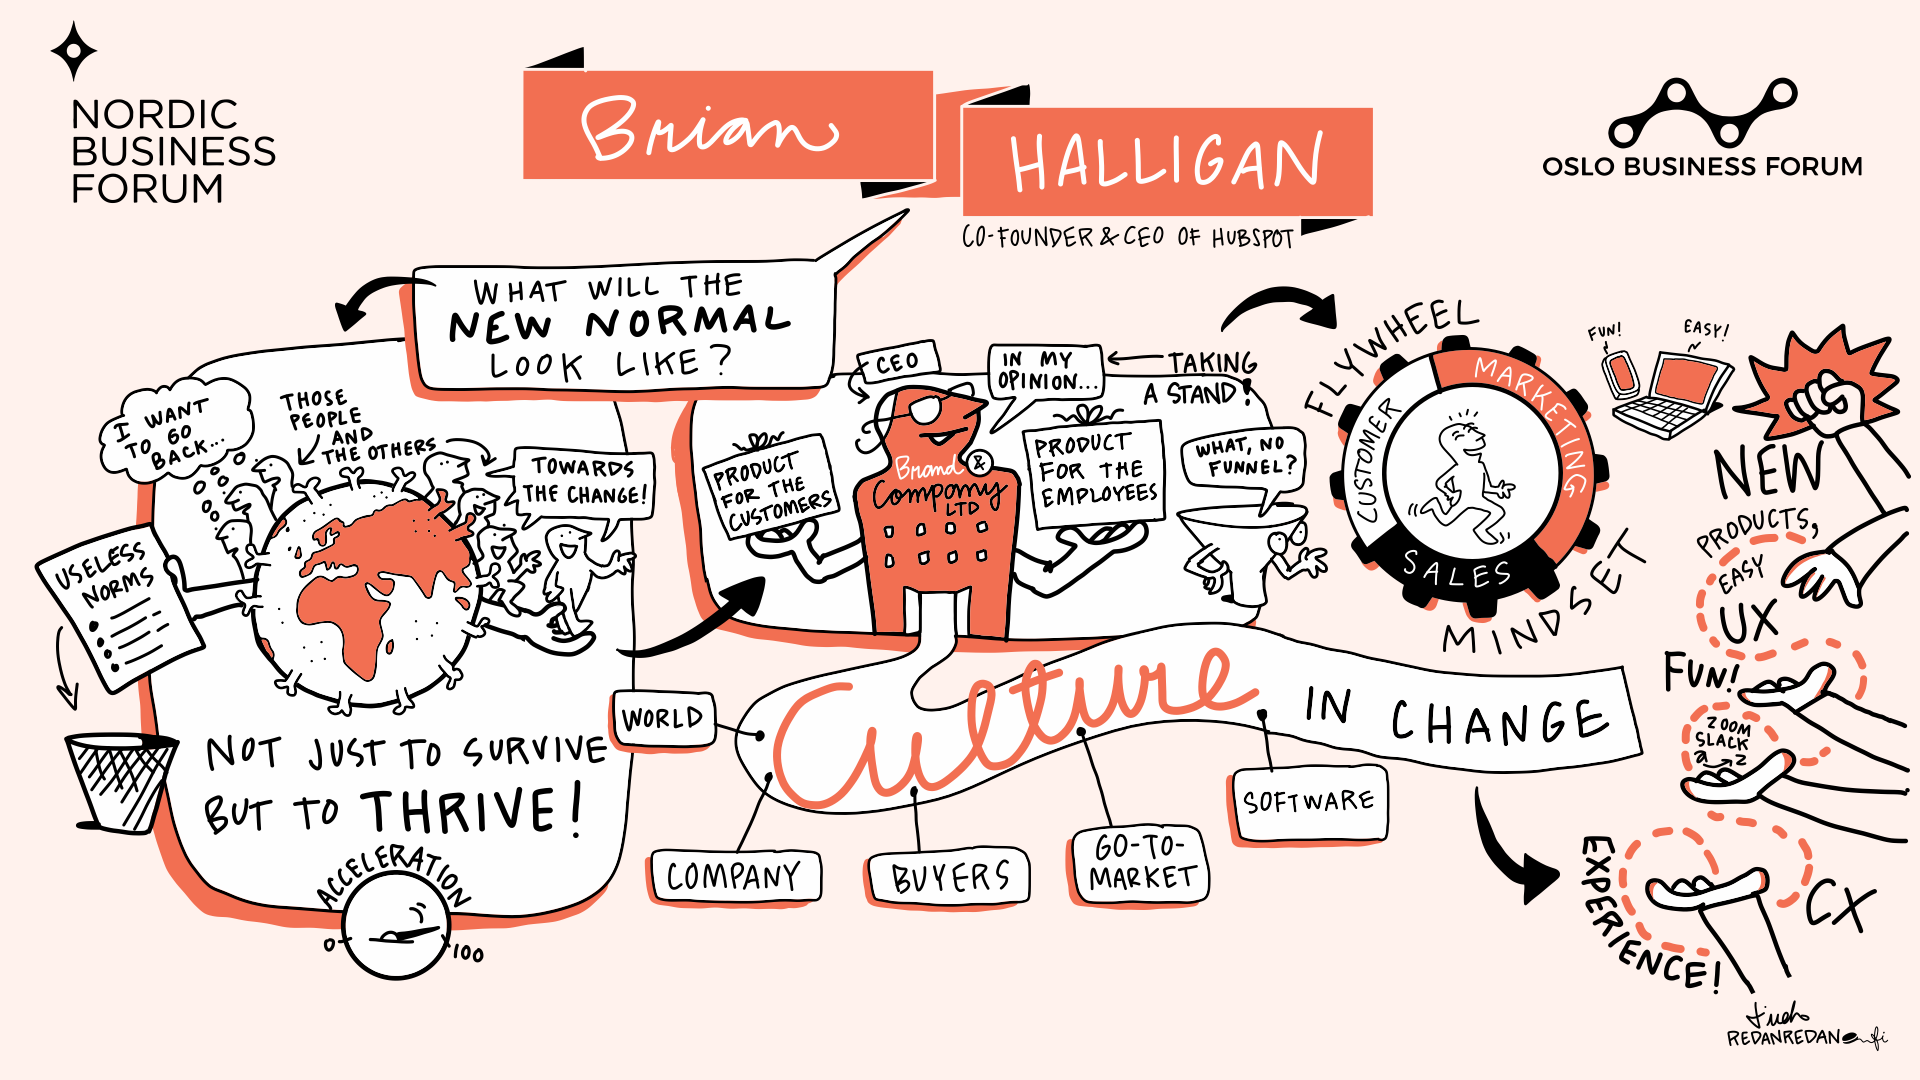 NORDIC
BUSINESS
FORUM
Brian
HALLIGAN
CO-FOUNDER & CEO OF HUBSPOT
OSLO BUSINESS FORUM
WHAT WILL THE
NEW NORMAL
LOOK LIKE?
I WANT
TO GO
BACK...
THOSE
PEOPLE
AND
THE OTHERS
TOWARDS
THE CHANGE!
USELESS
NORMS
NOT JUST TO SURVIVE
BUT TO THRIVE!
ACCELERATION
0
100
CEO
IN MY
OPINION...
TAKING
A STAND!
PRODUCT
FOR THE
CUSTOMERS
Brand &
Company
LTD
PRODUCT
FOR THE
EMPLOYEES
WHAT, NO
FUNNEL?
Culture IN CHANGE
WORLD
COMPANY
BUYERS
GO-TO-
MARKET
SOFTWARE
FLYWHEEL
MINDSET
CUSTOMER
MARKETING
SALES
FUN!
EASY!
NEW
PRODUCTS,
EASY
UX
FUN!
ZOOM
SLACK
a → z
EXPERIENCE!
CX
REDANREDAN